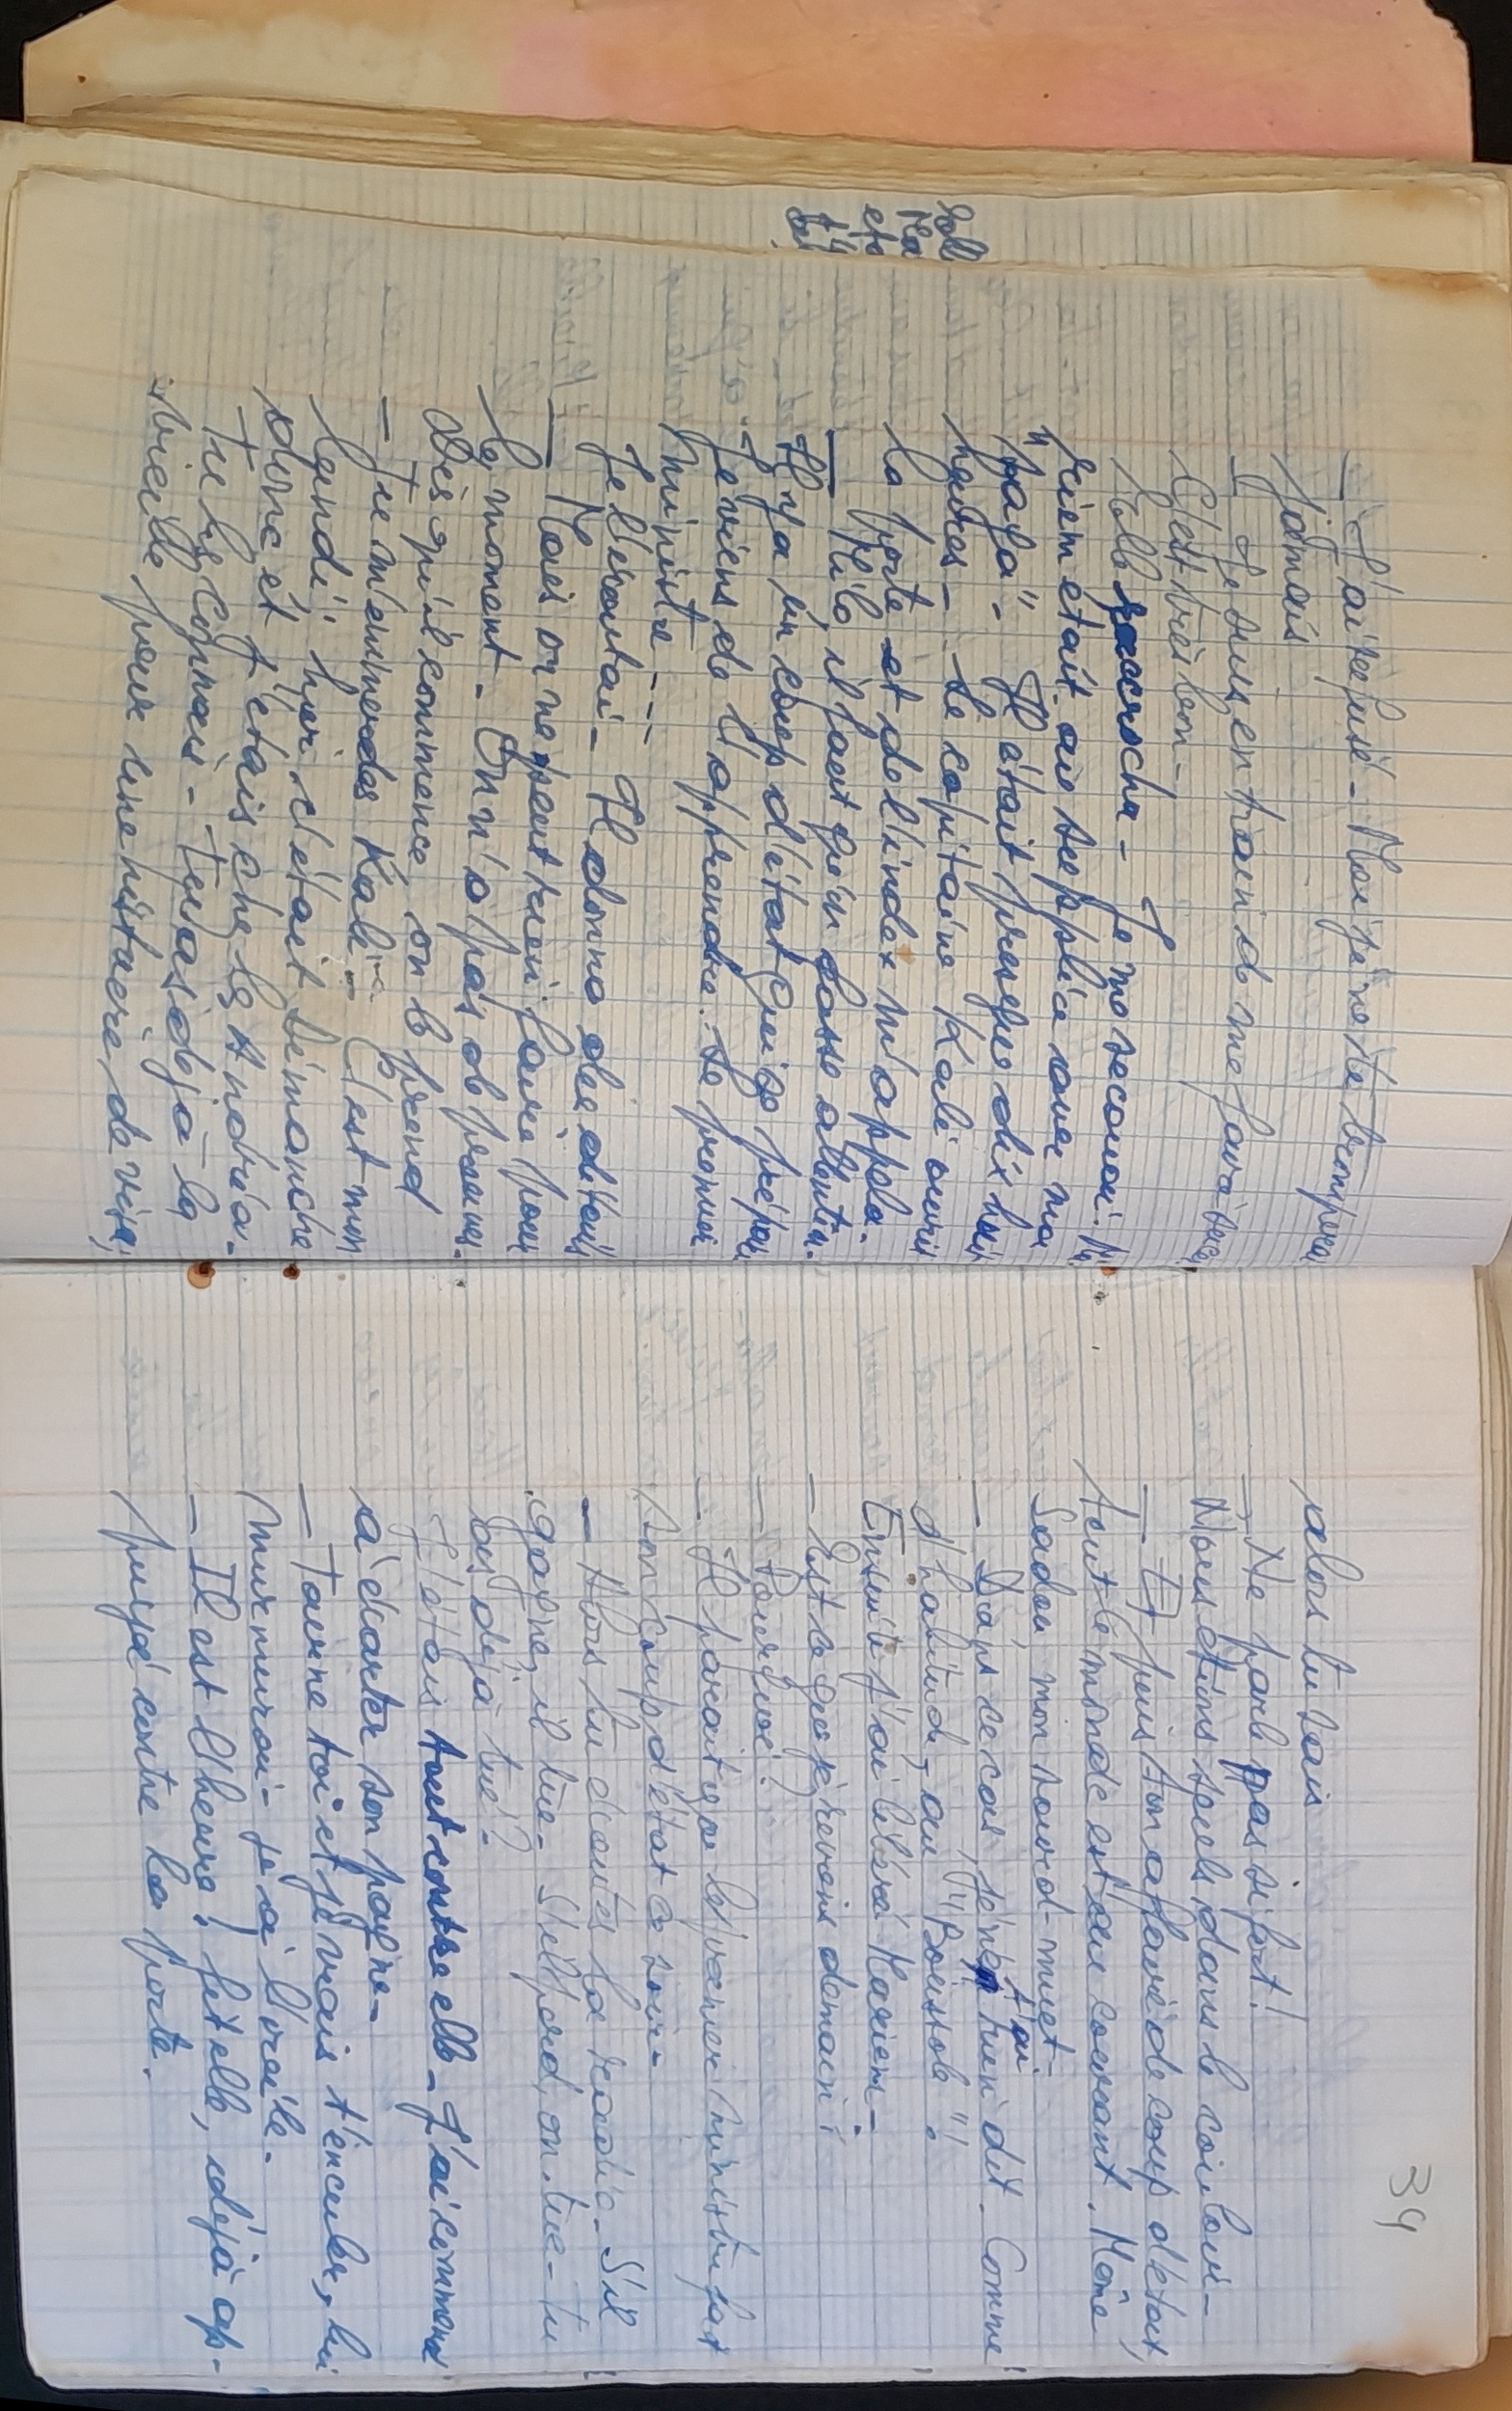 — J'ai refusé - Moi je ne te tromperai
jamais
— Je suis en train de me faire baiser
C'est très bon -
Elle raccrocha - Je me secouai. Ma
riem était au supplice sous ma
"yaya" - Il était presque dix huit
heures - Le capitaine Kali ouvrit
la porte et de l'index m'appela.
— Milo, il faut qu'on fasse attention.
Il y a un coup d'état qui se prépare
Je viens de l'apprendre. Le premier
ministre ---
Je l'écoutai - Il donna des détails
— Mais on ne peut rien faire pour
le moment - On n'a pas de preuves.
Dès qu'il commence, on le prend
— Tu m'emmerdes Kali - C'est mon
lundi, hier c'était dimanche
donc et j'étais chez les Andria-
Tu les connais - Tu as déjà la
vieille pour une histoire de visa,
39
alors tu sais
— Ne parle pas si fort!
Nous étions seuls dans le couloir -
— Et puis ton affaire de coup d'état,
tout le monde est au courant. Même
Sadou, mon sourd-muet -
— Dans ce cas, je n'ai rien dit. Comme
d'habitude, au "Boussole".
Ensuite j'ai libéré Mariem -
— Est-ce que je reviens demain?
— Pourquoi?
— Il paraît que le premier ministre fait
son coup d'état ce soir -
— Alors tu écoutes la radio - S'il
gagne, il tue - S'il perd, on tue - tu
as déjà tué?
J'étais tout contre elle - J'ai commencé
à écarter son pagne -
— Tourne toi et je vais t'enculer, lui
murmurai-je à l'oreille.
— Il est l'heure! fit elle, déjà ap-
puyé contre la porte.